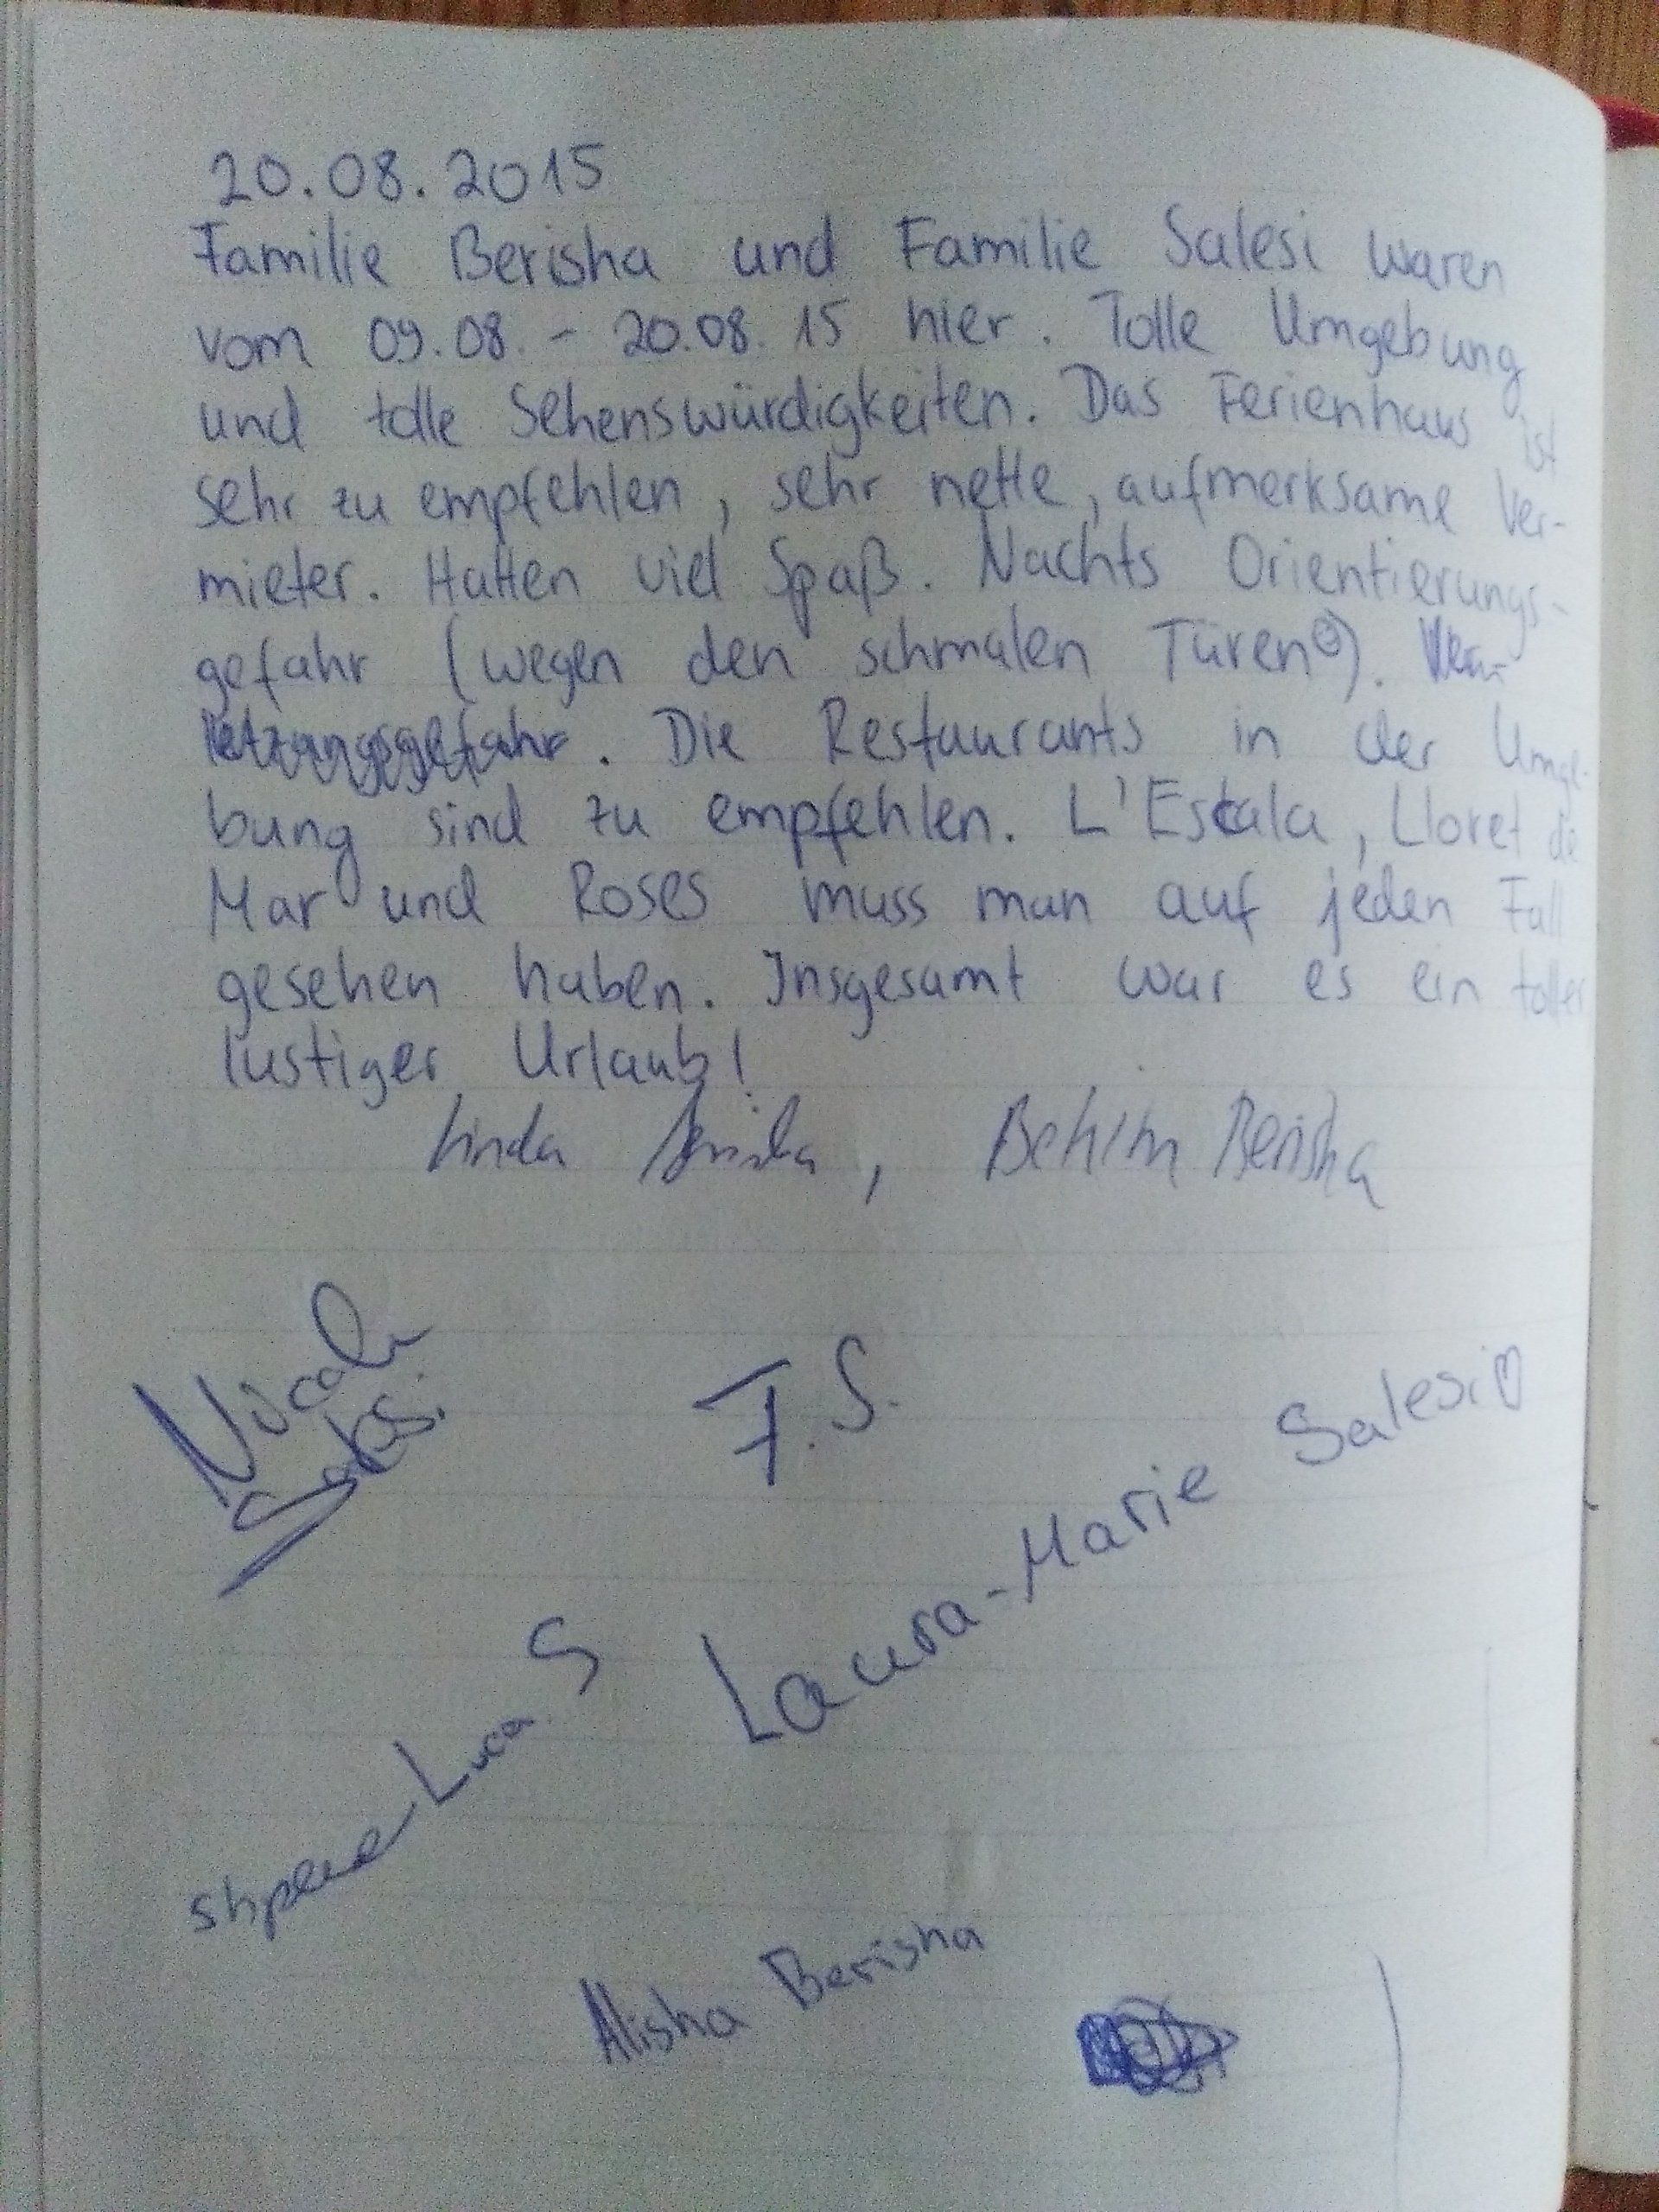 20.08.2015
Familie Berisha und Familie Salesi waren
vom 09.08. - 20.08.15 hier. Tolle Umgebung
und tolle Sehenswürdigkeiten. Das Ferienhaus ist
sehr zu empfehlen, sehr nette, aufmerksame Ver-
mieter. Hatten viel Spaß. Nachts Orientierungs-
gefahr (wegen den schmalen Türen☺). Ver-
letzungsgefahr. Die Restaurants in der Umge-
bung sind zu empfehlen. L'Escala, Lloret de
Mar und Roses muss man auf jeden Fall
gesehen haben. Insgesamt war es ein toller
lustiger Urlaub!
Linda Berisha, Behim Berisha
Salesi
F.S.
Laura-Marie Salesi♡
Luca S
Alisha Berisha